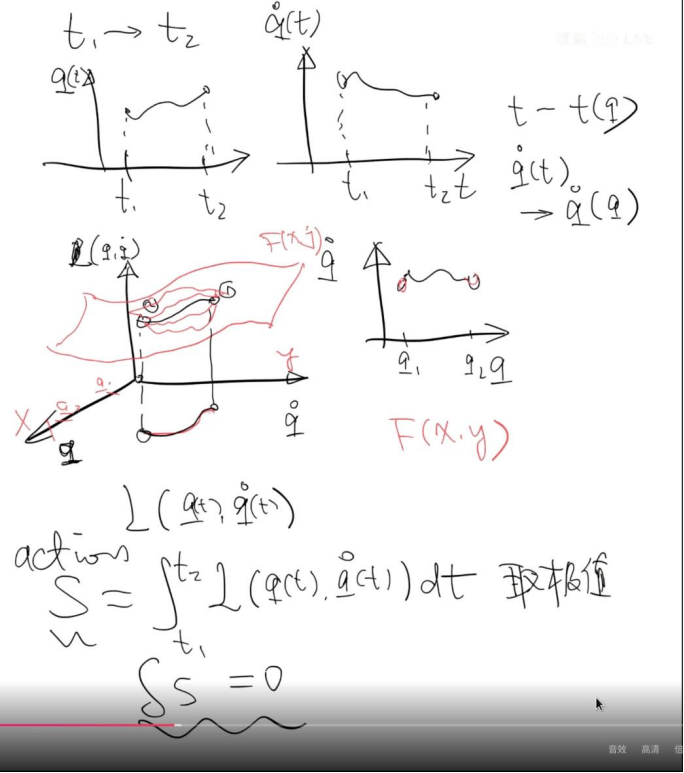 t₁ → t₂
q̇(t)
q(t)
t₁ t₂
t₁ t₂ t
t - t(q)
q̇(t)
→ q̇(q)
L(q, q̇)
F(x, y)
①
②
q₁
q₂
X
y
q
q̇
q̇
q₁ q₂ q
F(x, y)
L(q(t), q̇(t))
action
S = ∫ₜ₁ᵗ² L(q(t), q̇(t)) dt 取极值
δS = 0
音效 高清 倍